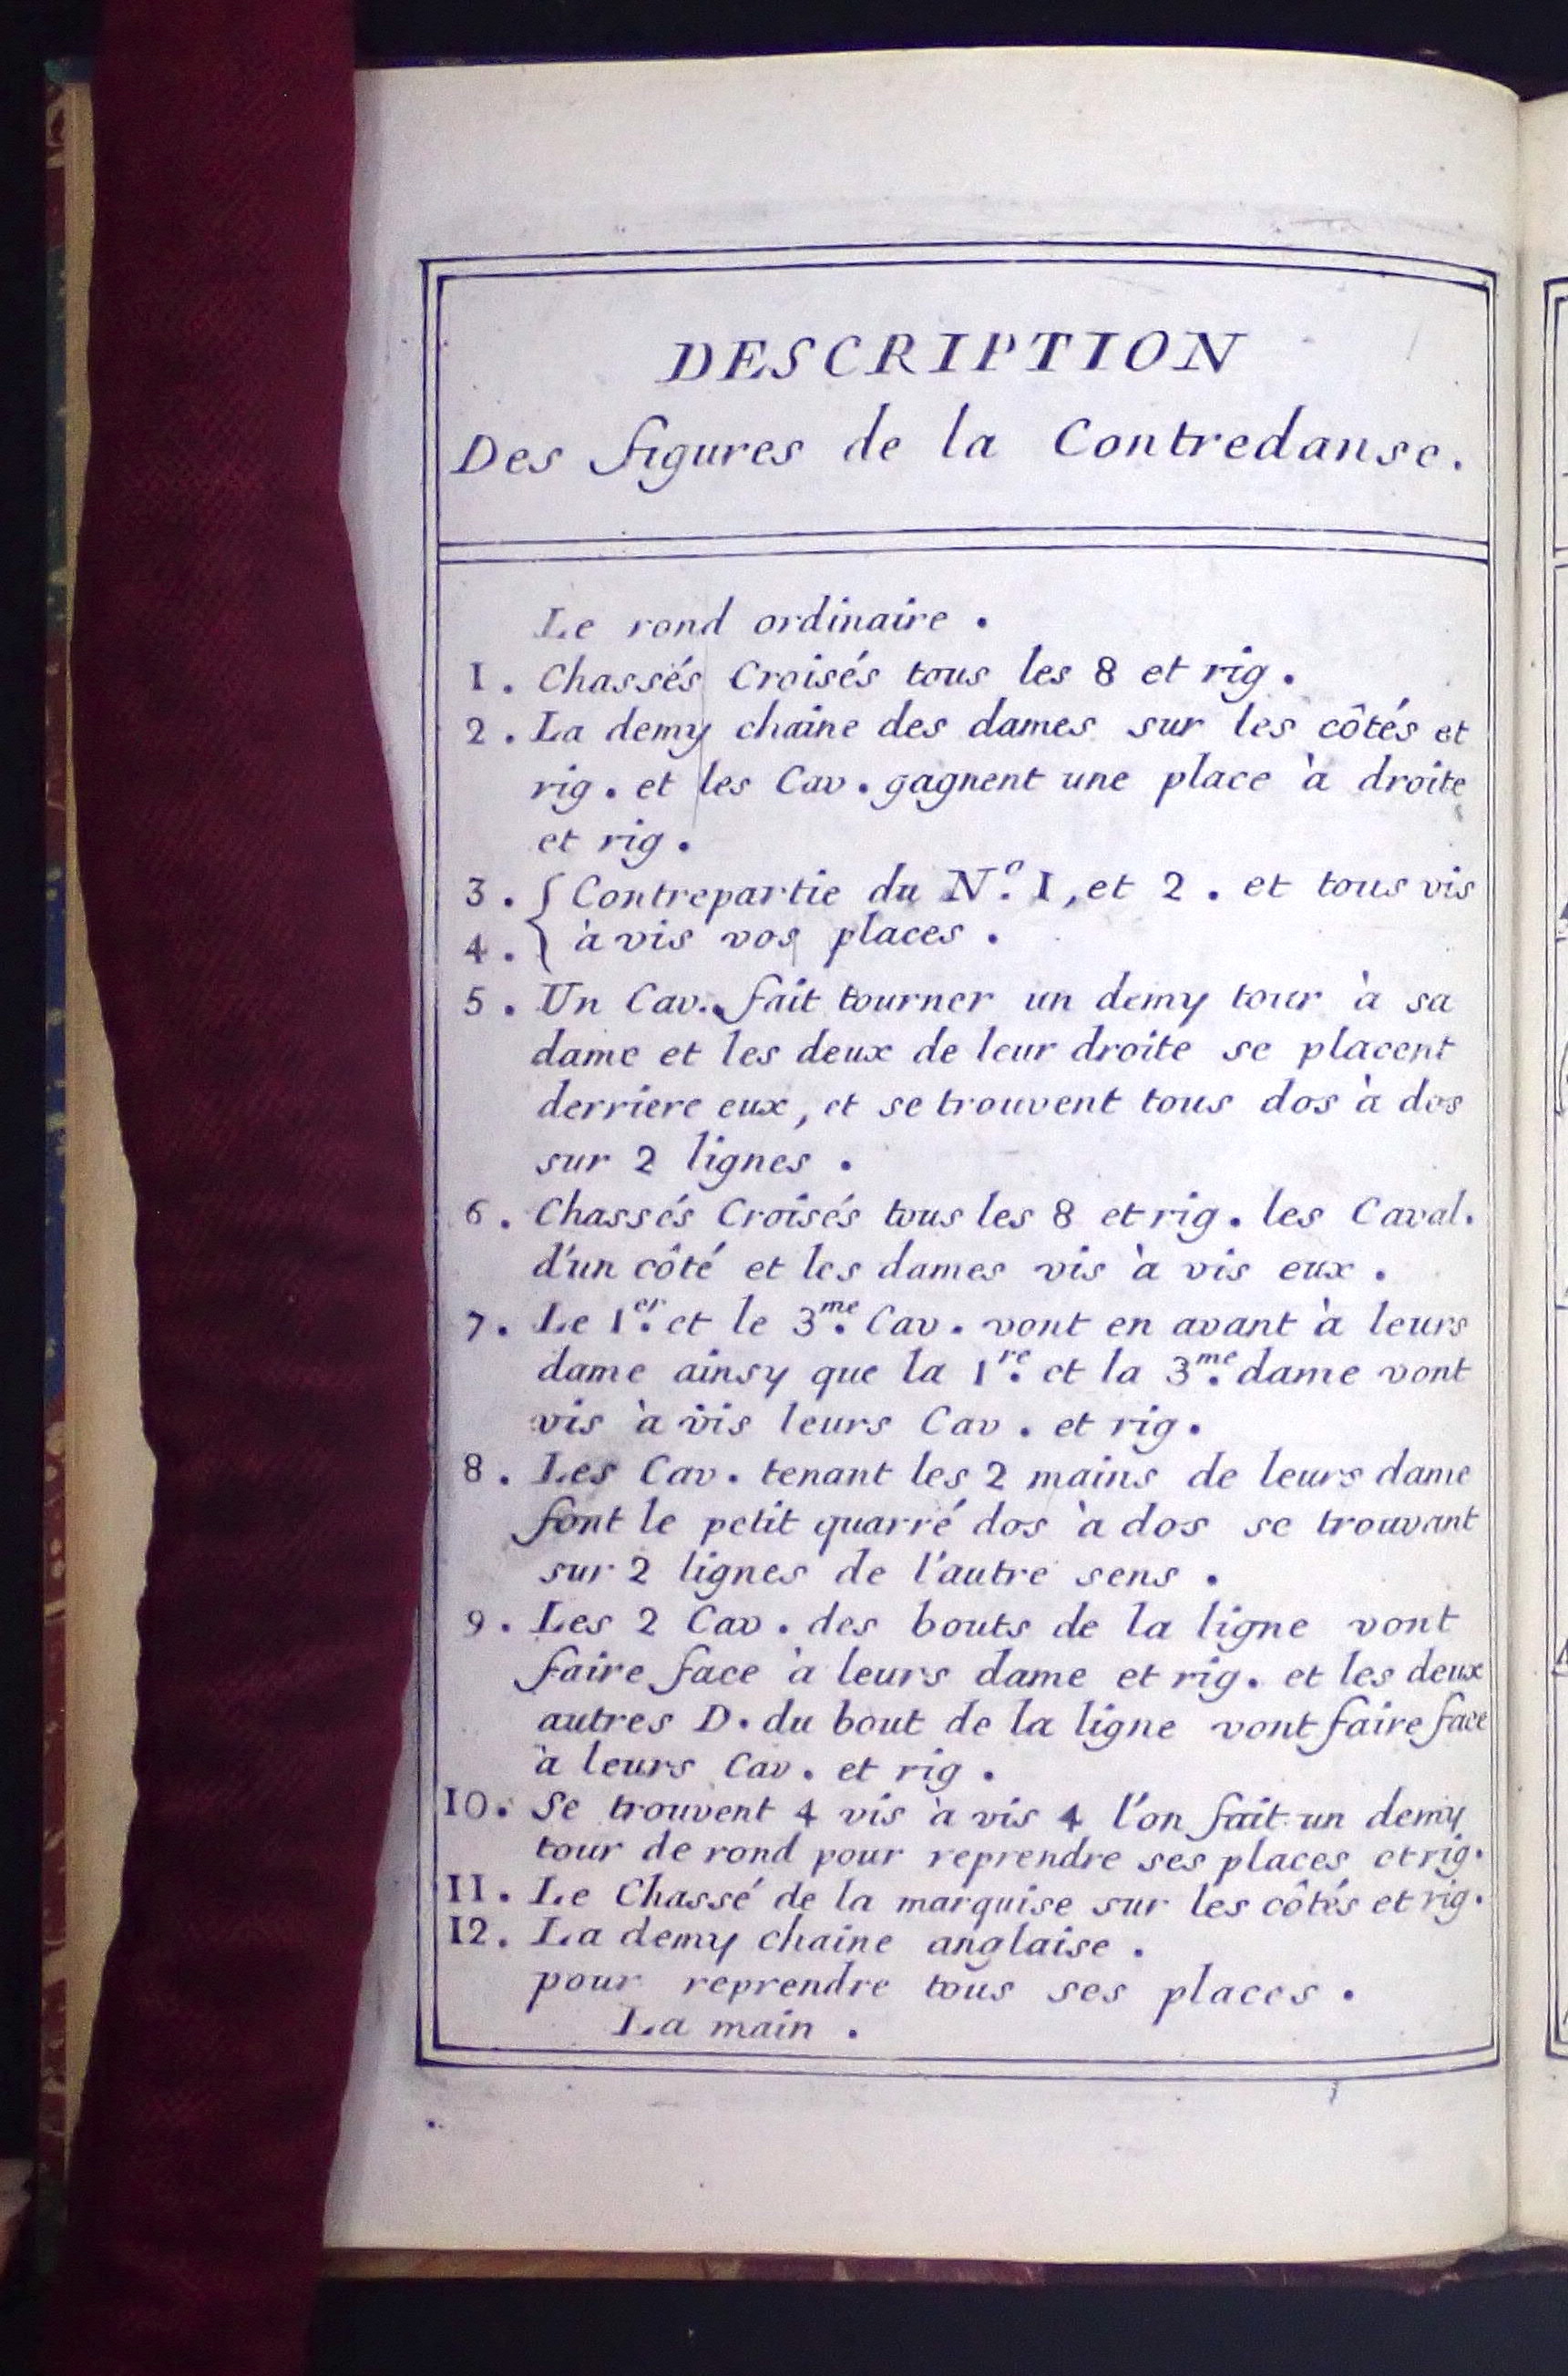 DESCRIPTION
Des figures de la Contredanse.
Le rond ordinaire .
1 . Chassés Croisés tous les 8 et rig .
2 . La demy chaîne des dames sur les côtés et
rig . et les Cav . gagnent une place à droite
et rig .
3 . { Contrepartie du N.º 1 , et 2 . et tous vis
4 . { à vis vos places .
5 . Un Cav. fait tourner un demy tour à sa
dame et les deux de leur droite se placent
derriere eux, et se trouvent tous dos à dos
sur 2 lignes .
6 . Chassés Croisés tous les 8 et rig . les Caval.
d'un côté et les dames vis à vis eux .
7 . Le 1.er et le 3.me Cav . vont en avant à leurs
dame ainsy que la 1.re et la 3.me dame vont
vis à vis leurs Cav . et rig .
8 . Les Cav . tenant les 2 mains de leurs dame
font le petit quarré dos à dos se trouvant
sur 2 lignes de l'autre sens .
9 . Les 2 Cav . des bouts de la ligne vont
faire face à leurs dame et rig . et les deux
autres D . du bout de la ligne vont faire face
à leurs Cav . et rig .
10 . Se trouvent 4 vis à vis 4 l'on fait un demy
tour de rond pour reprendre ses places et rig .
11 . Le Chassé de la marquise sur les côtés et rig .
12 . La demy chaine anglaise .
pour reprendre tous ses places .
La main .